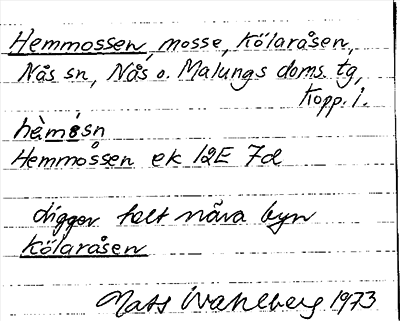 Hemmossen, mosse, Kölaråsen,
Nås sn, Nås o. Malungs doms. tg,
Kopp. l.
hèmósn
Hemmossen ek 12E 7d
ligger helt nära byn
Kölaråsen
Mats Wahlberg 1973